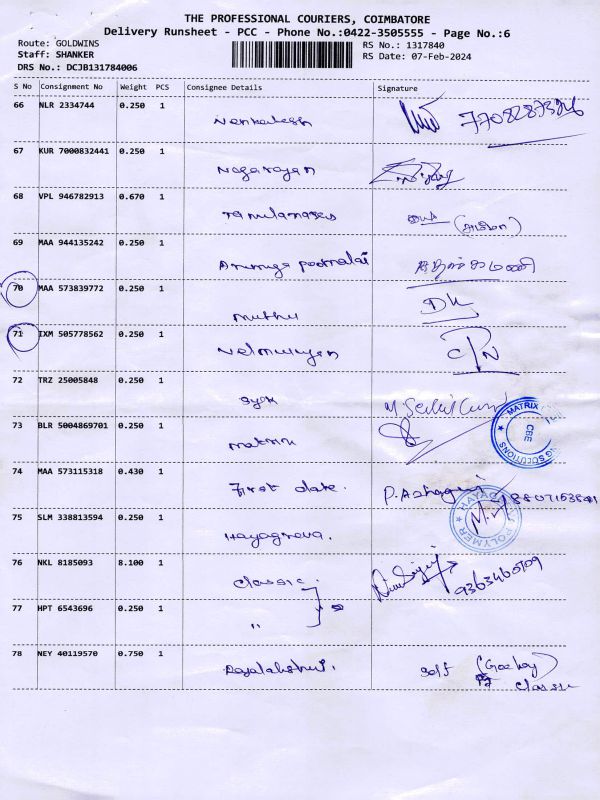 THE PROFESSIONAL COURIERS, COIMBATORE
Delivery Runsheet - PCC - Phone No.:0422-3505555 - Page No.:6
Route: GOLDWINS
RS No.: 1317840
Staff: SHANKER
RS Date: 07-Feb-2024
DRS No.: DCJB131784006
S No Consignment No Weight PCS Consignee Details Signature
66 NLR 2334744 0.250 1
Venkatesh
67 KUR 7000832441 0.250 1
Nagarajan
68 VPL 946782913 0.670 1
69 MAA 944135242 0.250 1
70 MAA 573839772 0.250 1
Muthu
71 IXM 505778562 0.250 1
Velmurugan
72 TRZ 25005848 0.250 1
73 BLR 5004869701 0.250 1
Matrix
MATRIX
CBE
SOLUTIONS
74 MAA 573115318 0.430 1
First date.
75 SLM 338813594 0.250 1
Hayagreva.
HAYAG
POLYMER
76 NKL 8185093 8.100 1
Classic.
77 HPT 6543696 0.250 1
"
78 NEY 40119570 0.750 1
Rajalakshmi.
Classic